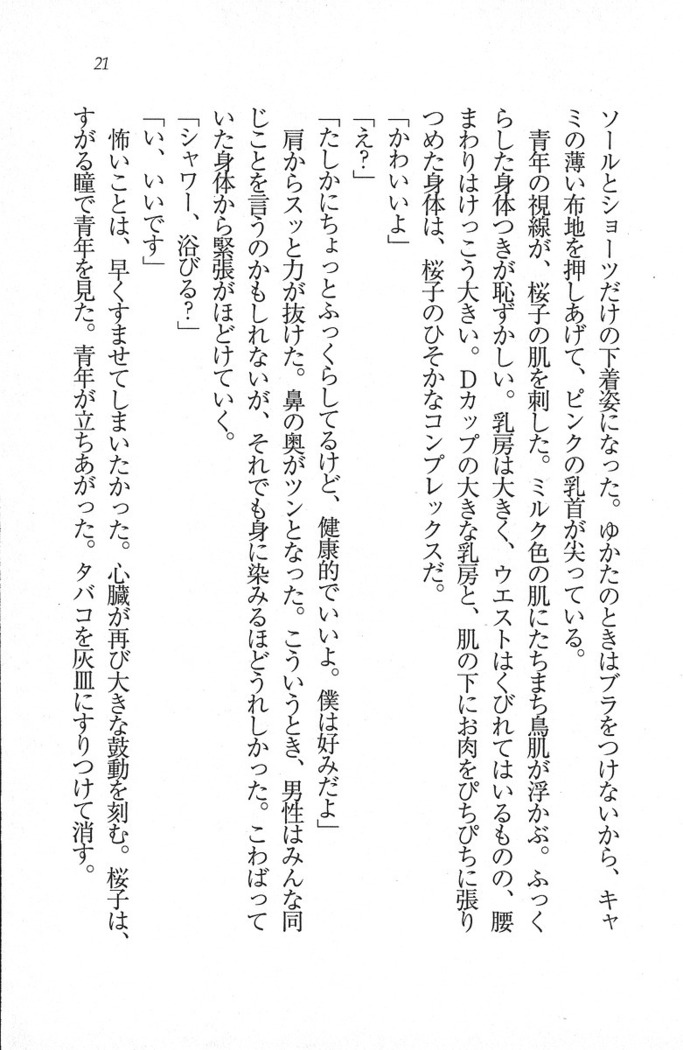 21
ソールとショーツだけの下着姿になった。ゆかたのときはブラをつけないから、キャ
ミの薄い布地を押しあげて、ピンクの乳首が尖っている。
青年の視線が、桜子の肌を刺した。ミルク色の肌にたちまち鳥肌が浮かぶ。ふっく
らした身体つきが恥ずかしい。乳房は大きく、ウエストはくびれてはいるものの、腰
まわりはけっこう大きい。Dカップの大きな乳房と、肌の下にお肉をぴちぴちに張り
つめた身体は、桜子のひそかなコンプレックスだ。
「かわいいよ」
「え?」
「たしかにちょっとふっくらしてるけど、健康的でいいよ。僕は好みだよ」
肩からスッと力が抜けた。鼻の奥がツンとなった。こういうとき、男性はみんな同
じことを言うのかもしれないが、それでも身に染みるほどうれしかった。こわばって
いた身体から緊張がほどけていく。
「シャワー、浴びる?」
「い、いいです」
怖いことは、早くすませてしまいたかった。心臓が再び大きな鼓動を刻む。桜子は、
すがる瞳で青年を見た。青年が立ちあがった。タバコを灰皿にすりつけて消す。